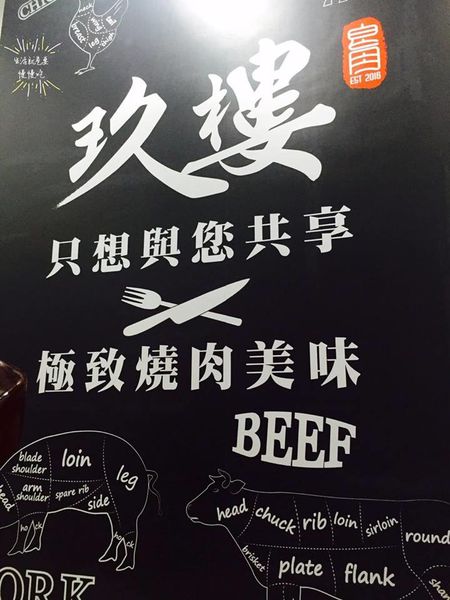 CHIC
chuck
breast
leg
thigh
生活就是要
慢慢吃
EST 2016
玖樓
只想與您共享
極致燒肉美味
BEEF
blade shoulder
loin
leg
arm shoulder
spare rib
side
head
hock
hock
head
chuck
rib
loin
sirloin
round
brisket
plate
flank
shank
PORK